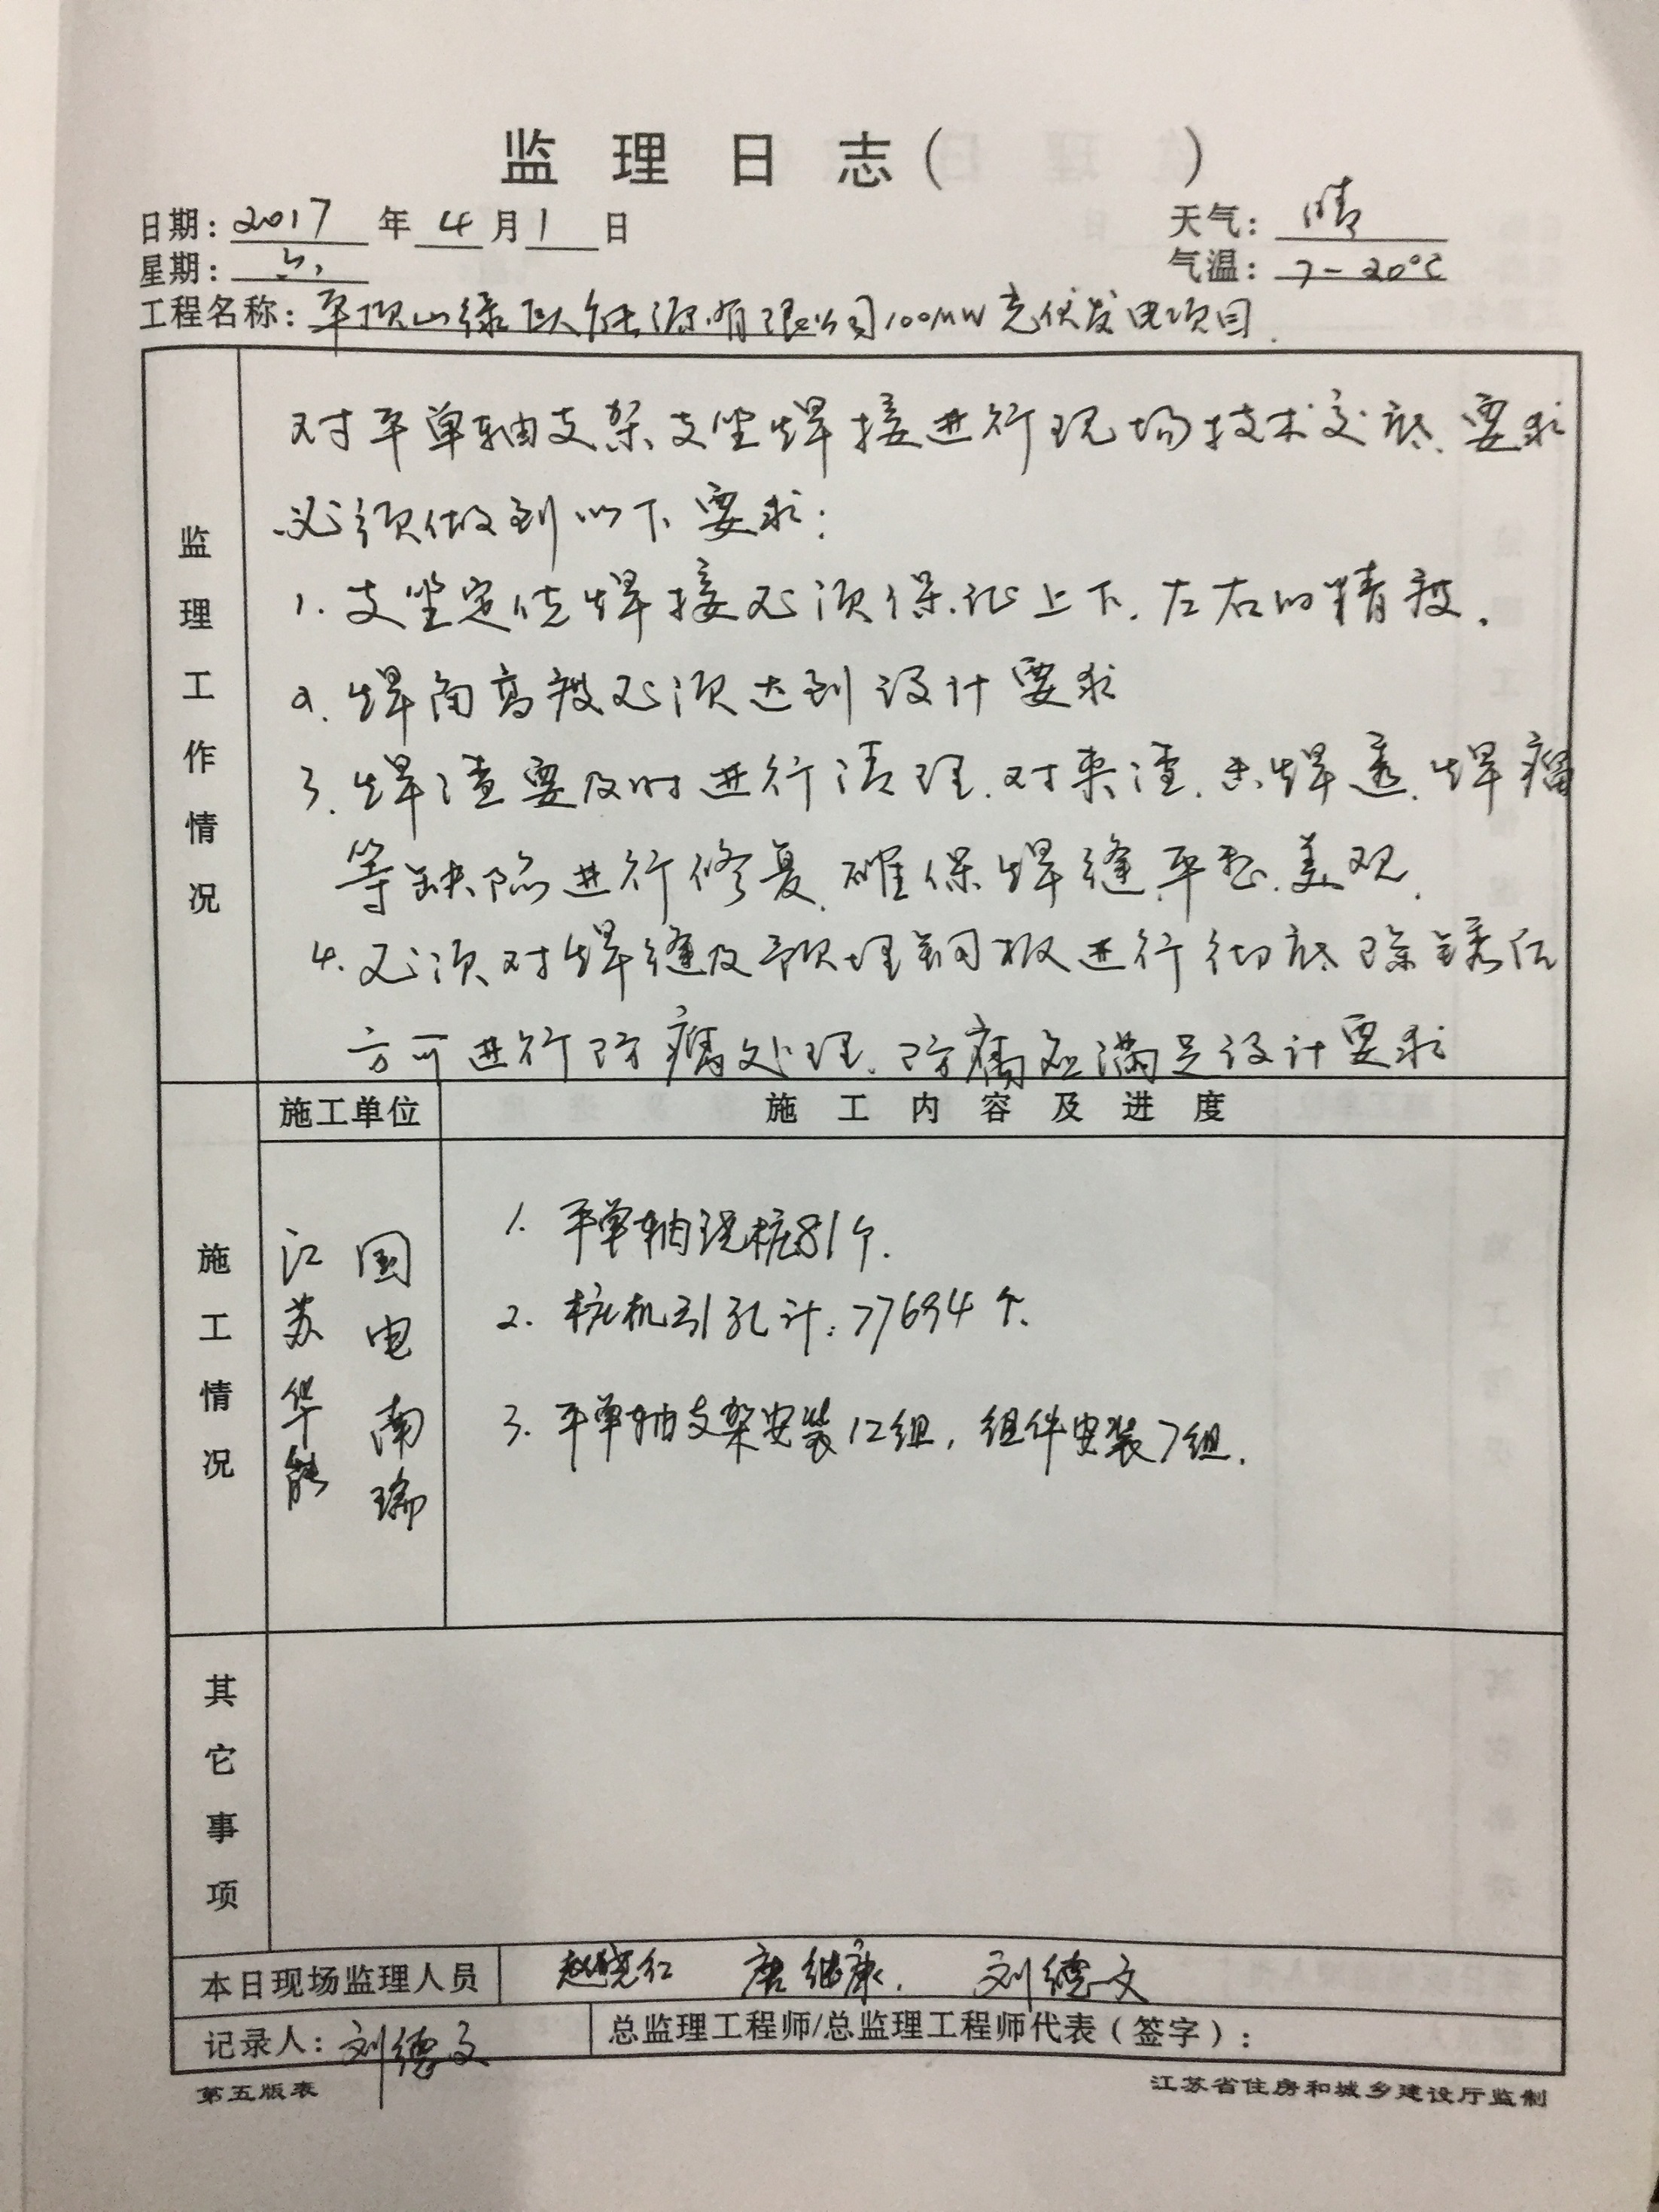 监理日志( )
日期: 2017 年 4 月 1 日 天气: 晴
星期: 六 气温: 7-20℃
工程名称: 平顶山绿 能源有限公司100MW光伏发电项目.
监理工作情况
对平单轴支架支坐焊接进行现场技术交底.要求
必须做到以下要求:
1. 支坐定位焊接必须保证上下.左右的精度.
2. 焊角高度必须达到设计要求
3. 焊渣要及时进行清理.对夹渣.未焊透.焊瘤
等缺陷进行修复.确保焊缝平整.美观.
4. 必须对焊缝及预埋钢板进行彻底除锈后
方可进行防腐处理.防腐应满足设计要求
施工情况
施工单位 施工内容及进度
江苏华能
国电南瑞
1. 平单轴现桩81个.
2. 桩机引孔计:77694个.
3. 平单轴支架安装12组,组件安装7组.
其它事项
本日现场监理人员 赵晓红 唐继康. 刘德文
记录人: 刘德文 总监理工程师/总监理工程师代表(签字):
第五版表 江苏省住房和城乡建设厅监制